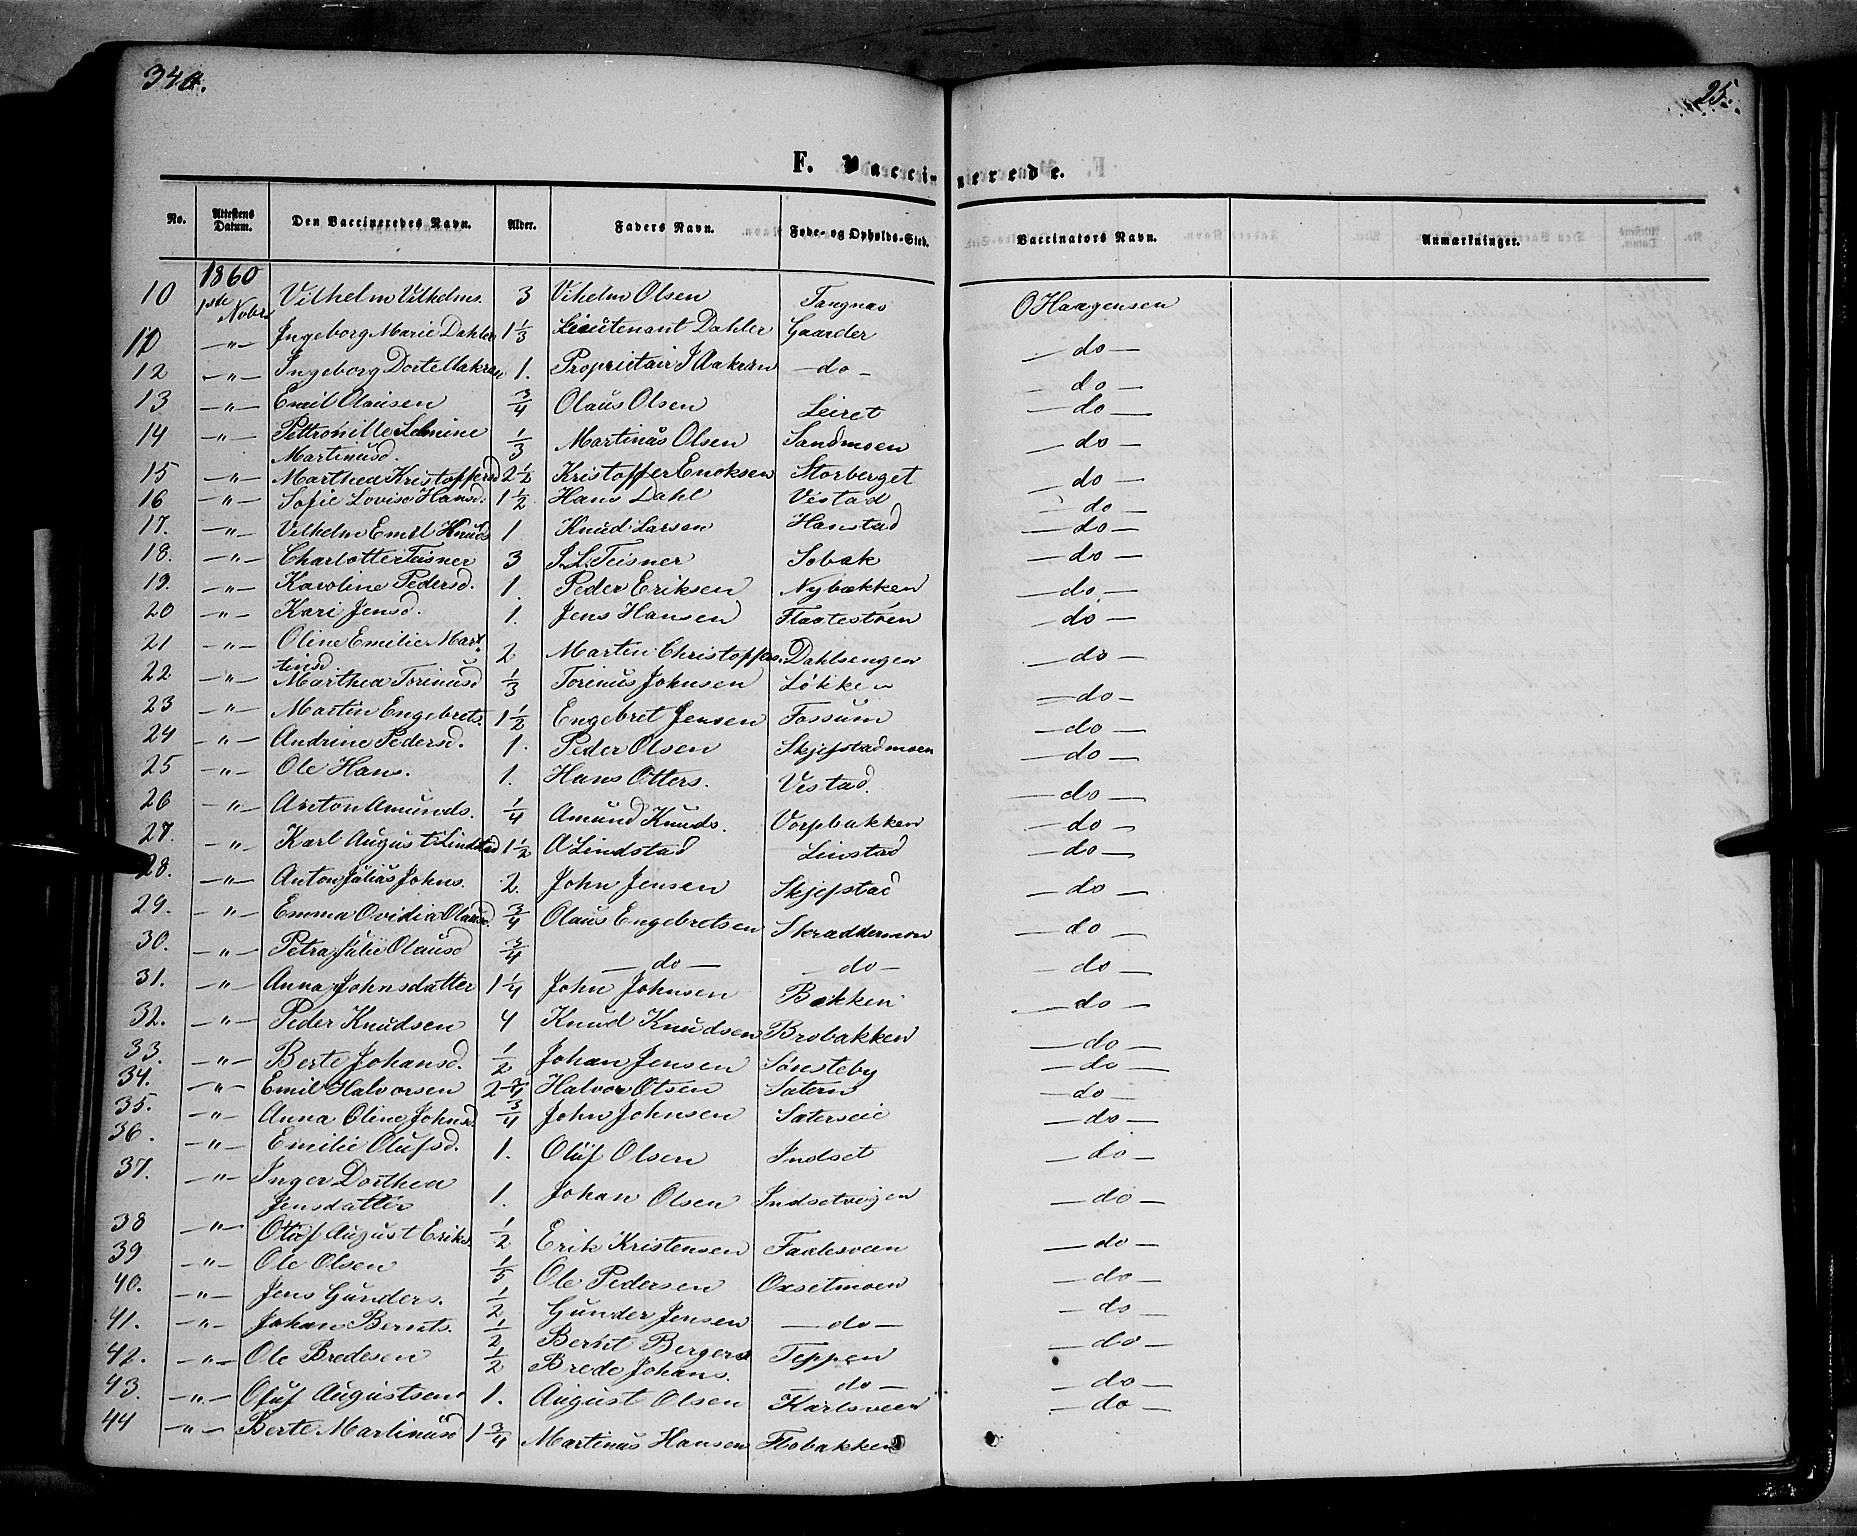 340.
25.
F. Vaccinerede.
No. Attestens Datum. Den Vaccineredes Navn. Alder. Faders Navn. Føde- og Opholds-Sted. Vaccinators Navn. Anmærkninger.
1860
10 1ste Novbr Vilhelm Vilhelms. 3 Vihelm Olsen Tangnæs O Haagensen
11 —"— Ingeborg Marie Dahler 1 1/3 Lieutenant Dahler Gaarder —do—
12 —"— Ingeborg Dorte Aakran 1. Proprietair J Aakran —do— —do—
13 —"— Emil Olausen 3/4 Olaus Olsen Leiret —do—
14 —"— Pettronille Selmine 1/3 Martinus Olsen Sandmoen —do—
Martinusd.
15 —"— Marthea Kristoffersd 2 1/2 Kristoffer Enoksen Storberget —do—
16 —"— Sofie Lovise Hansd. 1 1/2 Hans Dahl Vestad —do—
17. —"— Vilhelm Emil Knuds 1 Knud Larsen Hanstad —do—
18. —"— Charlotte Teisner 3 J. L. Teisner Sobak —do—
19. —"— Karoline Pedersd. 1. Peder Eriksen Nybækken —do—
20 —"— Kari Jensd. 1. Jens Hansen Flaatestøen —do—
21 —"— Oline Emilie Mar- 2 Martin Christoffers. Dahlsengen —do—
tinsd.
22 —"— Marthea Torinusd 1/3 Torinus Johnsen Løkken —do—
23 —"— Martin Engebrets. 1 1/2 Engebret Jensen Fossum —do—
24 —"— Andrine Pedersd. 1. Peder Olsen Skjefstadmoen —do—
25 —"— Ole Hans. 1. Hans Otters. Vestad. —do—
26 —"— Anton Amunds. 1/4 Amund Knuds. Vorpbakken —do—
27. —"— Karl August Lindstad 1 1/2 A Lindstad Linstad —do—
28. —"— Anton Julius Johns. 2. John Jensen Skjefstad —do—
29. —"— Emma Ovidia Olausd. 3/4 Olaus Engebretsen Skraddermoen —do—
30. —"— Petra Julie Olausd 3/4 —do— —do— —do—
31. —"— Anna Johnsdatter 1 1/4 John Johnsen Bakken —do—
32. —"— Peder Knudsen 4 Knud Knudsen Brobakken —do—
33. —"— Berte Johansd. 1/2 Johan Jensen Sørsteby —do—
34. —"— Emil Halvorsen 2 3/4 Halvor Olsen Satern —do—
35. —"— Anna Oline Johnsd. 3/4 John Johnsen Satereie —do—
36. —"— Emilie Olufsd. 1. Oluf Olsen Indset —do—
37. —"— Inger Dorthea 1. Johan Olsen Indsetvigen —do—
Jensdatter
38 —"— Oluf August Eriks. 1/2 Erik Kristensen Faalesveen —do—
39 —"— Ole Olsen 1/5 Ole Pedersen Oxsetmoen —do—
40. —"— Jens Gunders. 1/2 Gunder Jensen —do— —do—
41. —"— Johan Bernts. 1/2 Bernt Bergers Teppen —do—
42. —"— Ole Bredesen 1/2 Brede Johans. —do— —do—
43. —"— Oluf Augustsen 1. August Olsen Karlsveen —do—
44 —"— Berte Martinusd 1 3/4 Martinus Hansen Flobakken